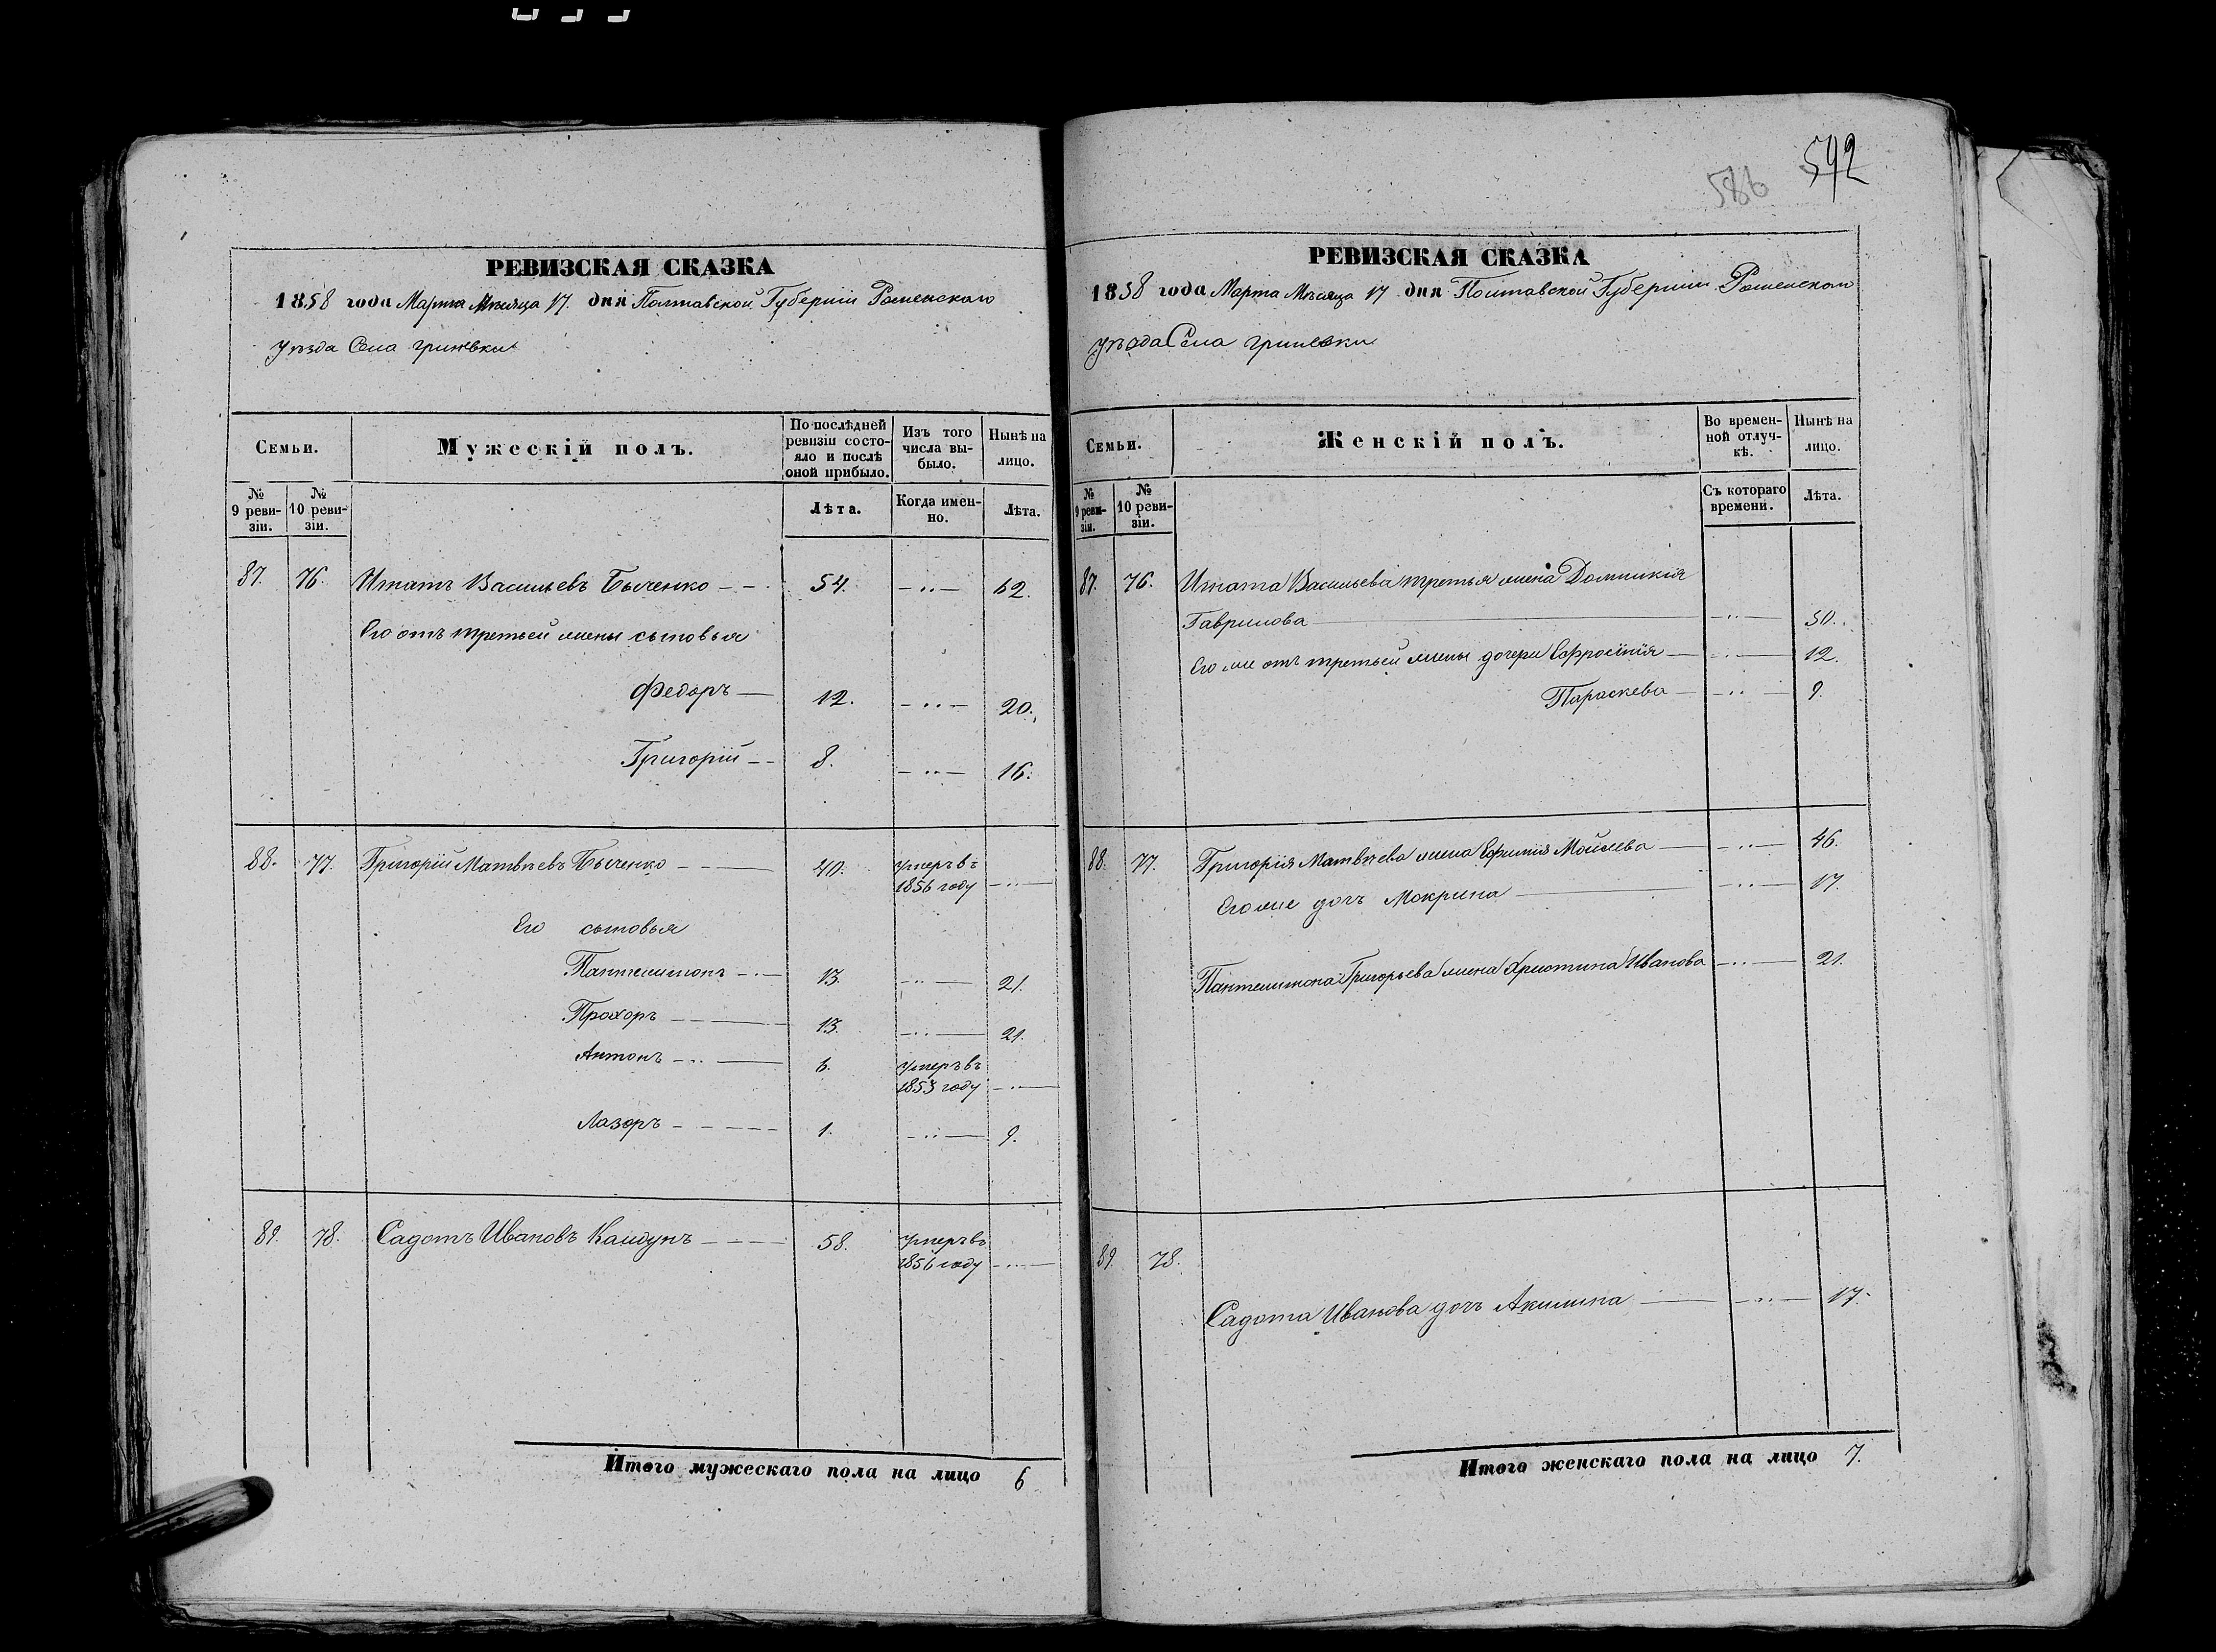 592
586
РЕВИЗСКАЯ СКАЗКА
1858 года Марта Мѣсяца 17. дня Полтавской Губерніи Роменскаго
уѣзда Села Гриневки
Семьи.
Мужескій полъ.
По послѣдней ревизіи состояло и послѣ оной прибыло.
Изъ того числа выбыло.
Нынѣ на лицо.
№ 9 ревизіи.
№ 10 ревизіи.
Лѣта.
Когда именно.
Лѣта.
87. 76. Ипатъ Васильевъ Быченко 54. 62.
Его отъ третьей жены сыновья
Федоръ 12. 20.
Григорій 8. 16.
88. 77. Григорій Матвѣевъ Быченко 40. умеръ въ
1856 году
Его сыновья
Пантелимонъ 13. 21.
Прохоръ 13. 21.
Антонъ 6. умеръ въ
1853 году
Лазоръ 1. 9.
89. 78. Садотъ Ивановъ 58. умеръ въ
1856 году
Итого мужескаго пола на лицо 6
РЕВИЗСКАЯ СКАЗКА
1858 года Марта Мѣсяца 17 дня Полтавской Губерніи Роменскаго
уѣзда Села Гриневки
Семьи.
Женскій полъ.
Во временной отлучкѣ.
Нынѣ на лицо.
№ 9 ревизіи.
№ 10 ревизіи.
Съ котораго времени.
Лѣта.
87. 76. Ипата Васильева третья жена Домникія
Гаврилова 50.
Его же отъ третьей жены дочери Ефросинія 12.
Параскева 9.
88. 77. Григорія Матвѣева жена Ефимія Мойсеева 46.
Его же дочь Мокрина 17.
Пантелимона Григорьева жена Христина Иванова 21.
89. 78.
Садота Иванова дочь Акилина 17.
Итого женскаго пола на лицо 7.